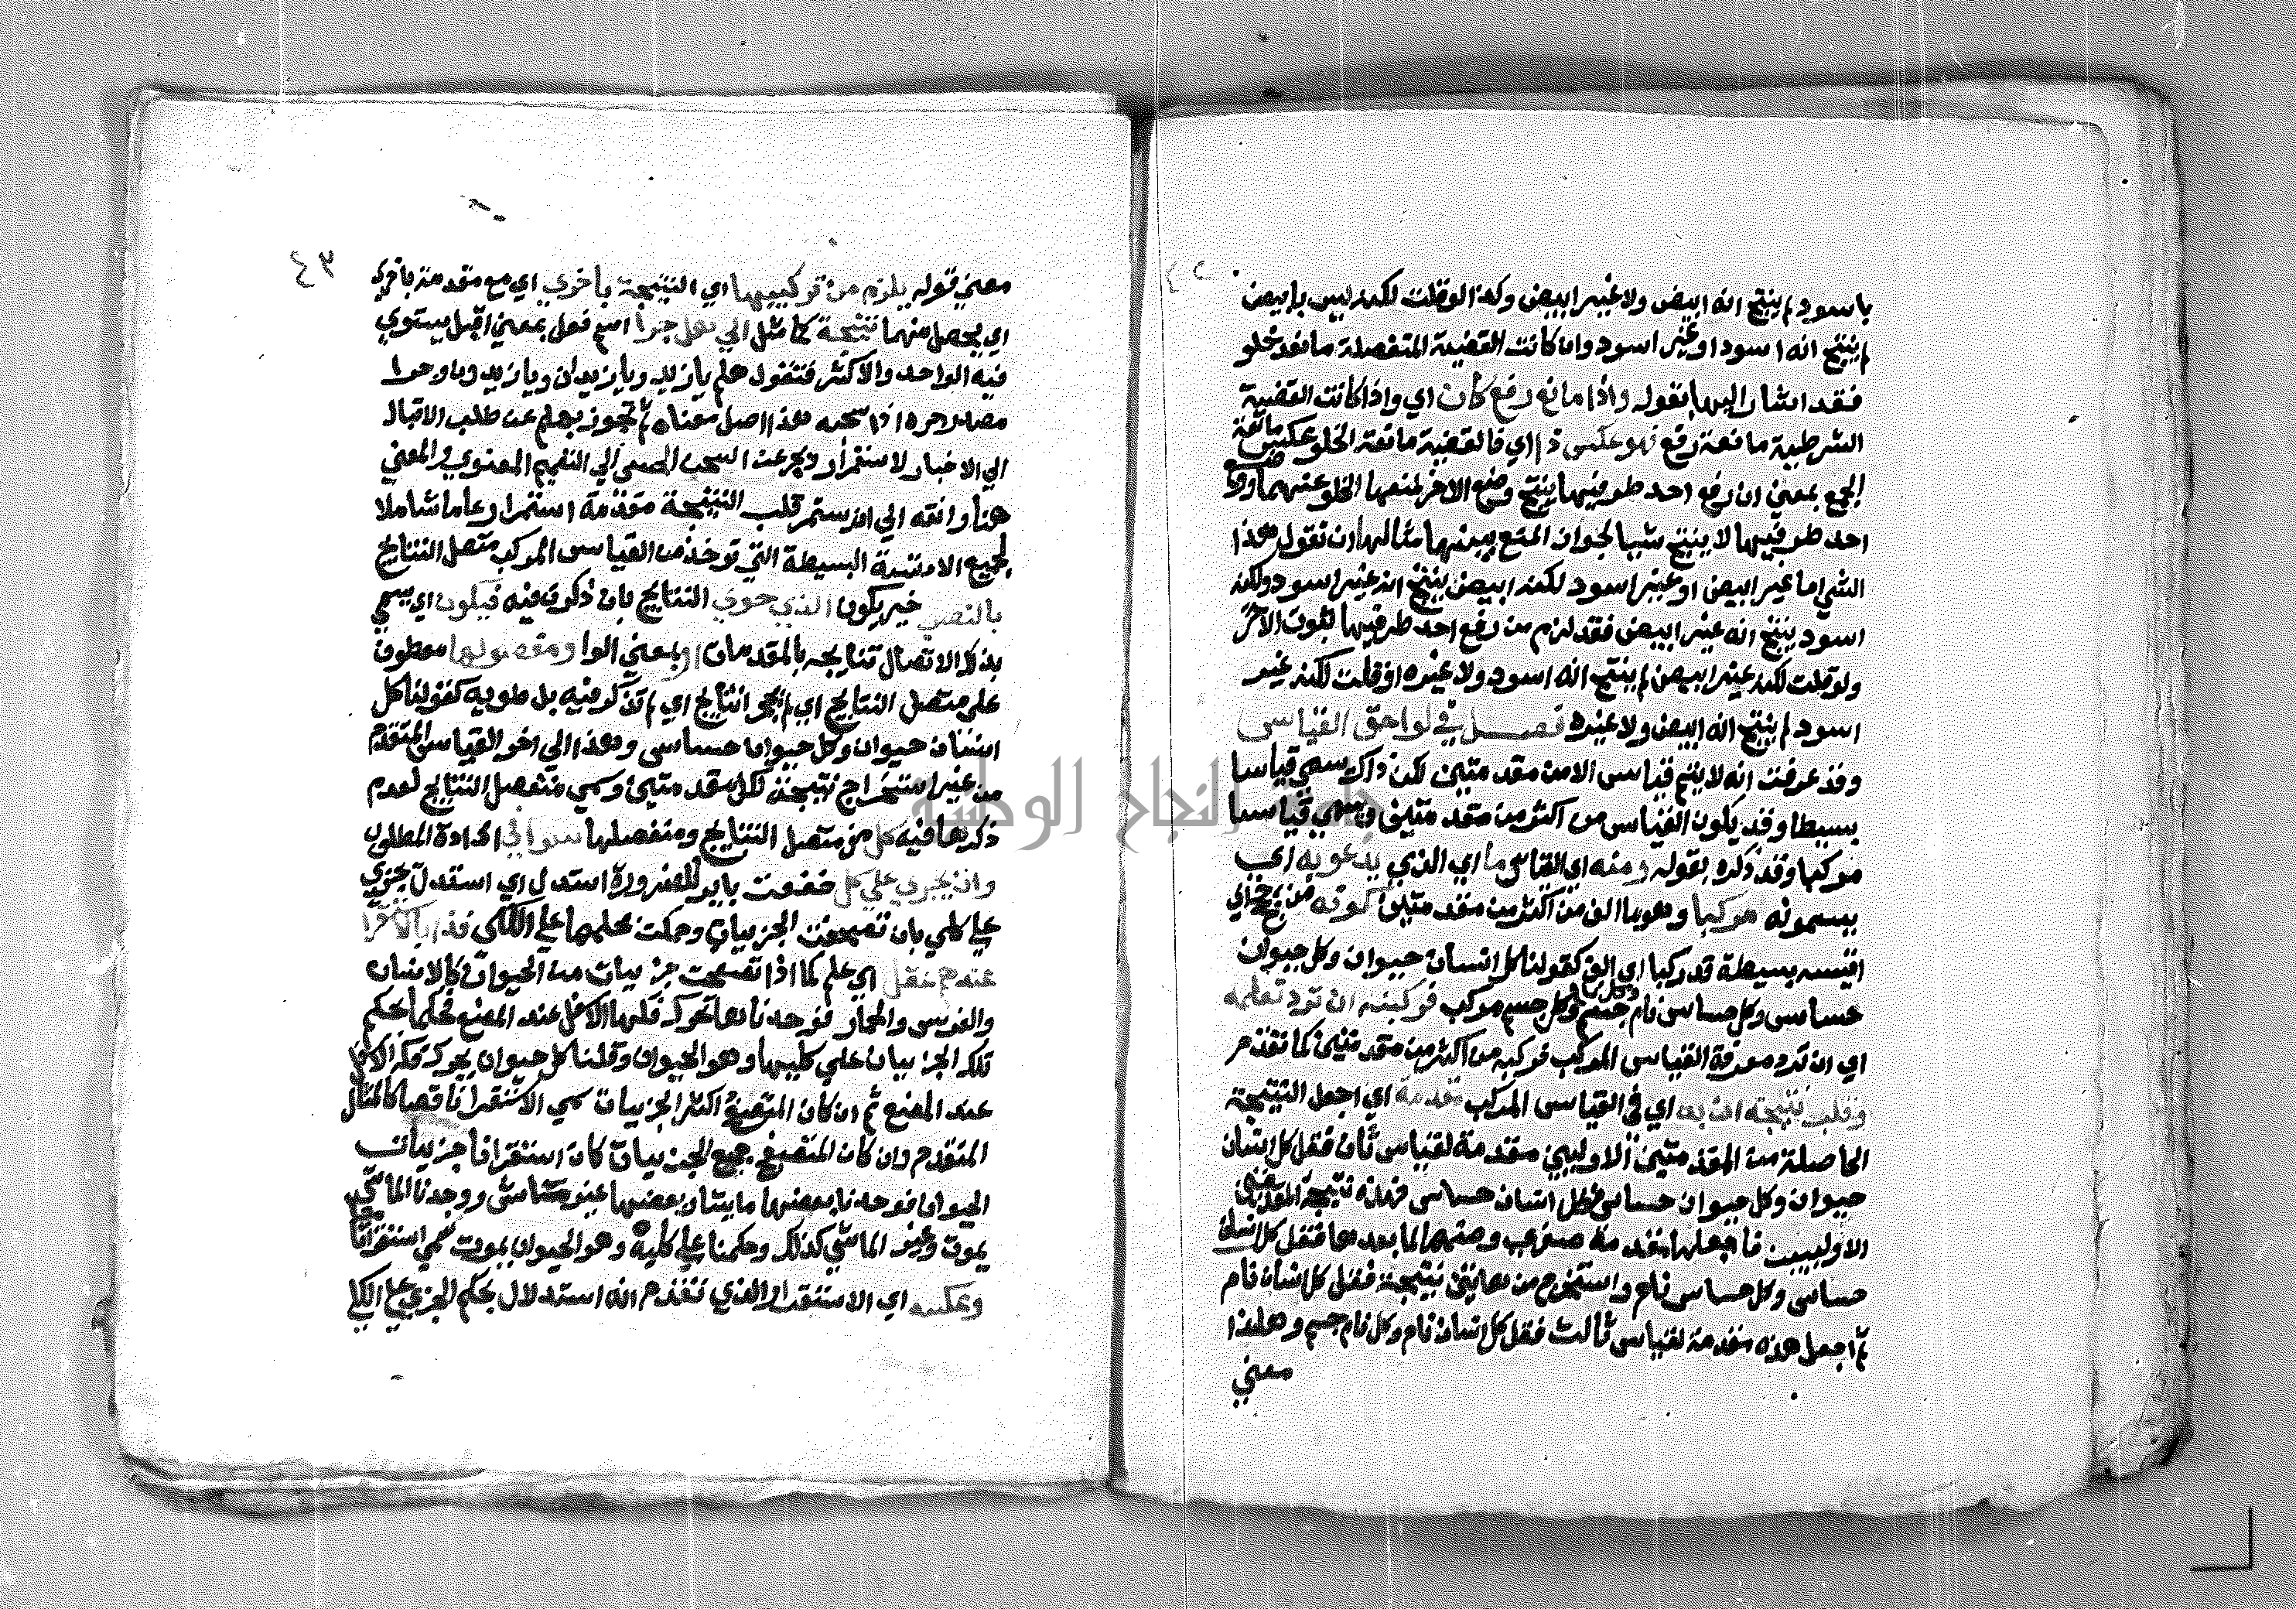 باسود لم ينتج انه ابيض ولا غير ابيض وكذا لو قلت لكنه ليس بابيض
لم ينتج انه اسود او غير اسود وان كانت القضية المتفصلة مانعة خلو
فقد اشار اليها بقوله واذا مانع رفع كان اي واذا كانت القضية
الشرطية مانعة رفع فهو عكس ذا اي فالقضية مانعة الخلو عكس مانعة
الجمع بمعني ان رفع احد طرفيها ينتج وضع الاخر لمنعها الخلو عنهما ووضع
احد طرفيها لا ينتج شيا لجواز الجمع بينهما مثالها ان تقول هذا
الشي اما غير ابيض او غير اسود لكنه ابيض ينتج انه غير اسود ولكنه
اسود ينتج انه غير ابيض فقد لزم من رفع احد طرفيها ثبوت الاخر
ولو قلت لكنه غير ابيض لم ينتج انه اسود ولا غيره او قلت لكنه غير
اسود لم ينتج انه ابيض ولا غيره فصل في لواحق القياس
وقد عرفت انه لا ينتج قياس الا من مقدمتين لكن ذاك سمي قياسا
بسيطا وقد يكون القياس من اكثر من مقدمتين وسمي قياسا
مركبا وقد ذكره بقوله ومنه اي القياس ما اي الذي يدعونه اي
يسمونه مركبا وهو ما الف من اكثر من مقدمتين لكونه من حجج اي
اقيسه بسيطة قد ركبا اي الف كقولنا كل انسان حيوان وكل حيوان
حساس وكل حساس نام وكل نام جسم وكل جسم مركب فركبنه ان ترد تعلمه
اي ان ترد معرفة القياس المركب فركبه من اكثر من مقدمتين كما تقدم
وقلب نتيجة به اي في القياس المركب مقدمة اي اجعل النتيجة
الحاصلة من المقدمتين الاوليين مقدمة لقياس ثان فقل كل انسان
حيوان وكل حيوان حساس فكل انسان حساس فهذه نتيجة المقدمتين
الاوليين فاجعلها مقدمة صغري وضمها لما بعدها فقل كل انسان
حساس وكل حساس نام واستخرج من هاتين نتيجة فقل كل انسان نام
ثم اجعل هذه مقدمة لقياس ثالث فقل كل انسان نام وكل نام جسم وهلذا
معني
٤٣
معني قوله يلزم من تركيبها اي النتيجة باخري اي مع مقدمة باخري
اي يحصل منهما نتيجة كما مثل الي هلم جرا اسم فعل بمعني اقبل يستوي
فيه الواحد والاكثر فتقول هلم يا زيد ويا زيدان ويا زيدون وجرا
مصدر جره اذا سحبه هذا اصل معناه ثم تجوز بهلم عن طلب الاقبال
الي الاخبار لاستمرار وبجر عن السحب الحسي الي التعميم المعنوي والمعني
هنا وانته الي الاستمر قلب النتيجة مقدمة استمرارا عاما شاملا
لجميع الاقيسة البسيطة التي توخذ من القياس المركب متصل النتايج
بالنصب خبر يكون الذي حوي النتايج بان ذكرت فيه فيكون اي يسمي
بذلك لاتصال نتايجه بالمقدمات او بمعني الواو مفصولها معطوف
علي متصل النتايج اي لم يحو انتايج اي لم تذكر فيه بل طويه كقولنا كل
انسان حيوان وكل حيوان حساس وهذا الي اخر القياس المتقدم
من غير استخراج نتيجة لكل مقدمتين وسمي متفصل النتايج لعدم
ذكرها فيه كل من متصل النتايج ومنفصلها سوا في افادة المطلوب
وان بجزي علي كل خففت يايه للضرورة استدل اي استدل بجزي
علي كلي بان تصفحت الجزييات وحكمت بحكمها علي الكلي فذا بالاستقرا
عندهم عقل اي علم كما اذا تصفحت جزييات من الحيوان كالانسان
والفرس والحمار فوجدناها تحرك فكها الاسفل عند المضغ فحكمنا بحكم
تلك الجزييات علي كليها وهو الحيوان وقلنا كل حيوان يحرك فكه الاسفل
عند المضغ ثم ان كان المتصفح اكثر الجزييات سمي الاستقرا ناقصا كالمثال
المتقدم وان كان المتصفح جميع الجزييات كان استقرانا جزييات
الحيوان فوجدنا بعضها ماشيا وبعضها غير ماش ووجدنا الماشي
يموت وغير الماشي كذلك وحكمنا علي كليه وهو الحيوان بموت سمي استقرا تاما
وعكسه اي الاستقرا والذي تقدم انه استدلال بحكم الجزي علي الكلي